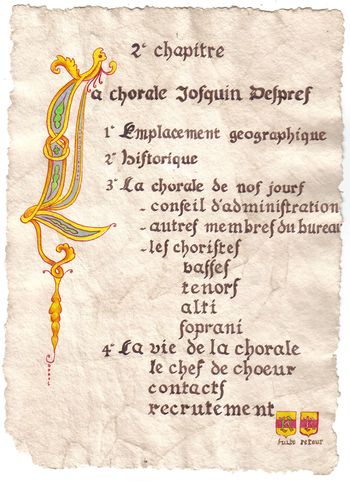 2e chapitre
La chorale Josquin Despres
1° Emplacement geographique
2° historique
3° La chorale de nos jours
- conseil d'administration
- autres membres du bureau
- les choristes
basses
tenors
alti
soprani
4° La vie de la chorale
le chef de choeur
contacts
recrutement
suite retour